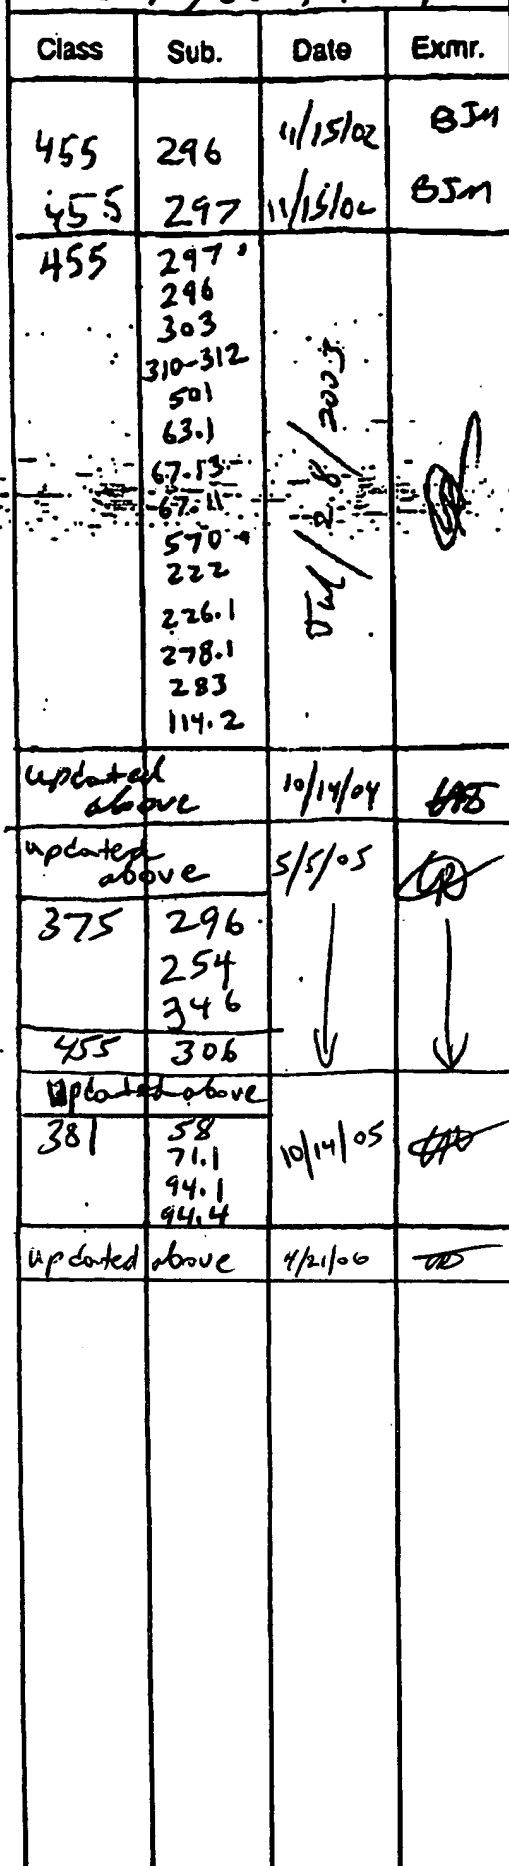 Class Sub. Date Exmr.
455 296 11/15/02 BJM
455 297 11/15/02 BJM
455 297
296
303
310-312
501
63.1
67.13
67.11
570
222
226.1
278.1
283
114.2
Jul / 28 / 2003
updated
above 10/14/04
updated
above 5/5/05
375 296
254
346
455 306
updated above
381 58 10/14/05
71.1
94.1
94.4
updated above 4/21/06